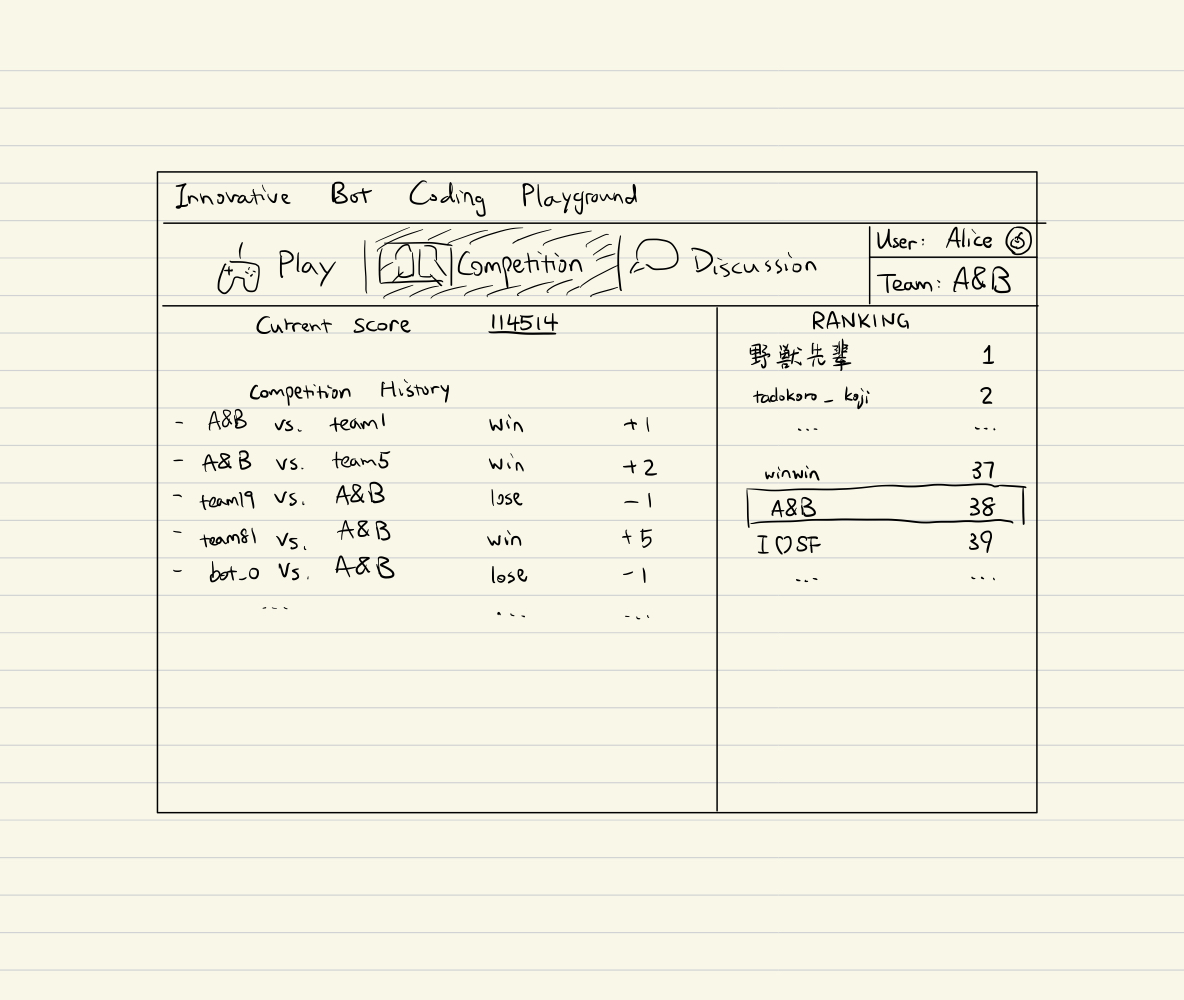 Innovative Bot Coding Playground
Play | Competition | Discussion
User: Alice
Team: A&B
Current Score 114514
Competition History
- A&B vs. team1 win +1
- A&B vs. team5 win +2
- team19 vs. A&B lose -1
- team81 vs. A&B win +5
- bot_0 vs. A&B lose -1
... ... ...
RANKING
野獣先輩 1
tadokoro_koji 2
... ...
winwin 37
A&B 38
I ♡ SF 39
... ...